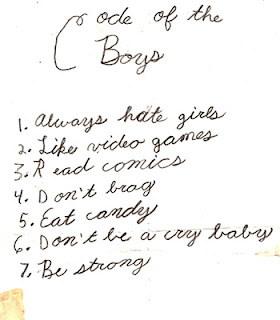 Code of the
Boys
1. Always hate girls
2. Like video games
3. Read comics
4. Don't brag
5. Eat candy
6. Don't be a cry baby
7. Be strong